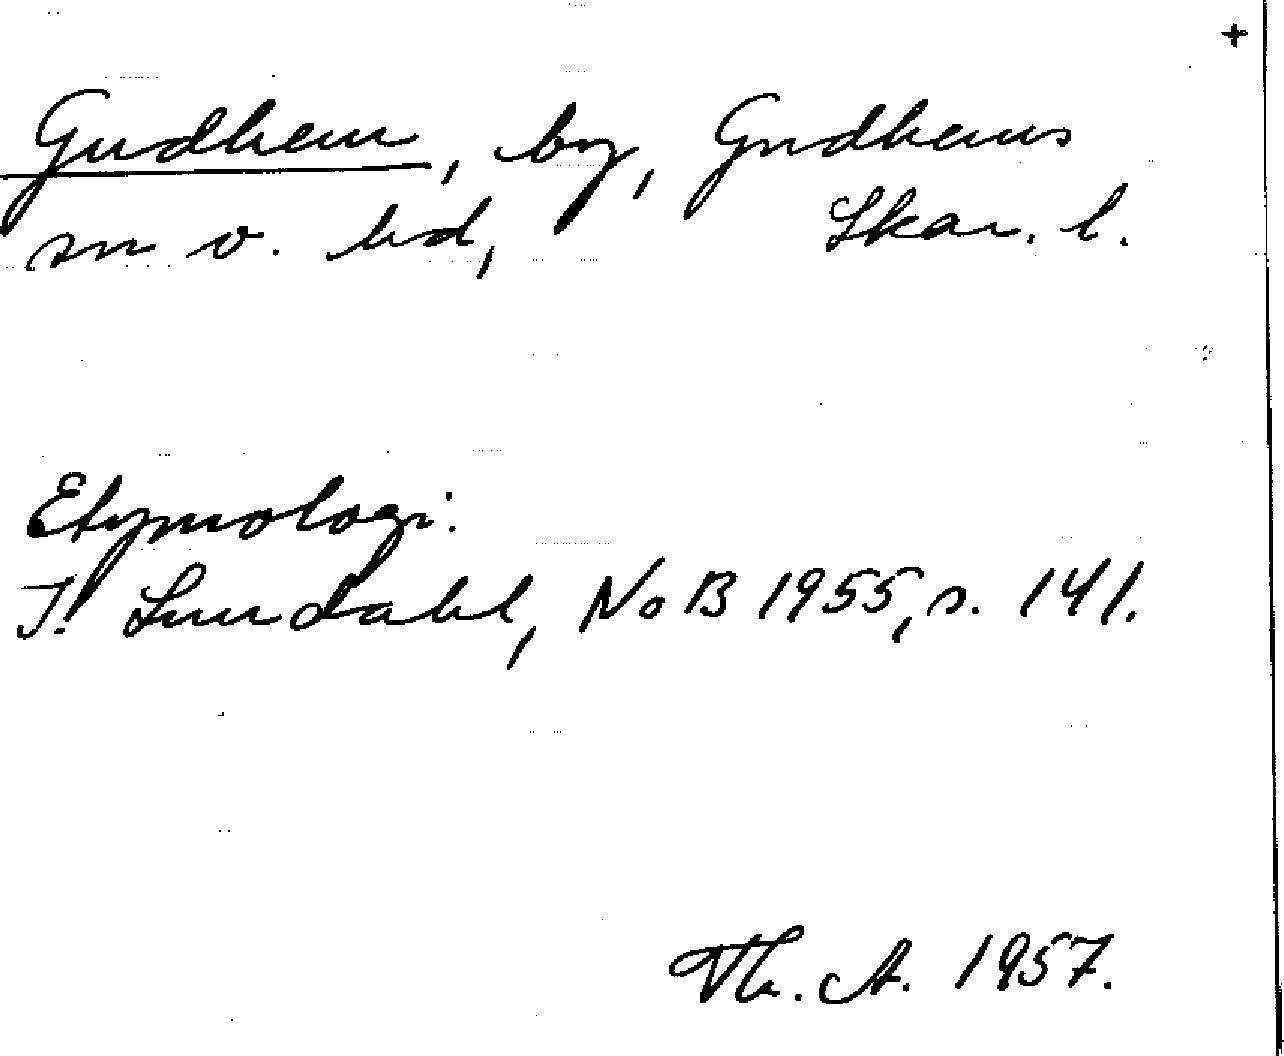 +
Gudhem, by, Gudhems
sn o. hd, Skar. l.
Etymologi:
I. Lundahl, NoB 1955, s. 141.
Th. A. 1957.